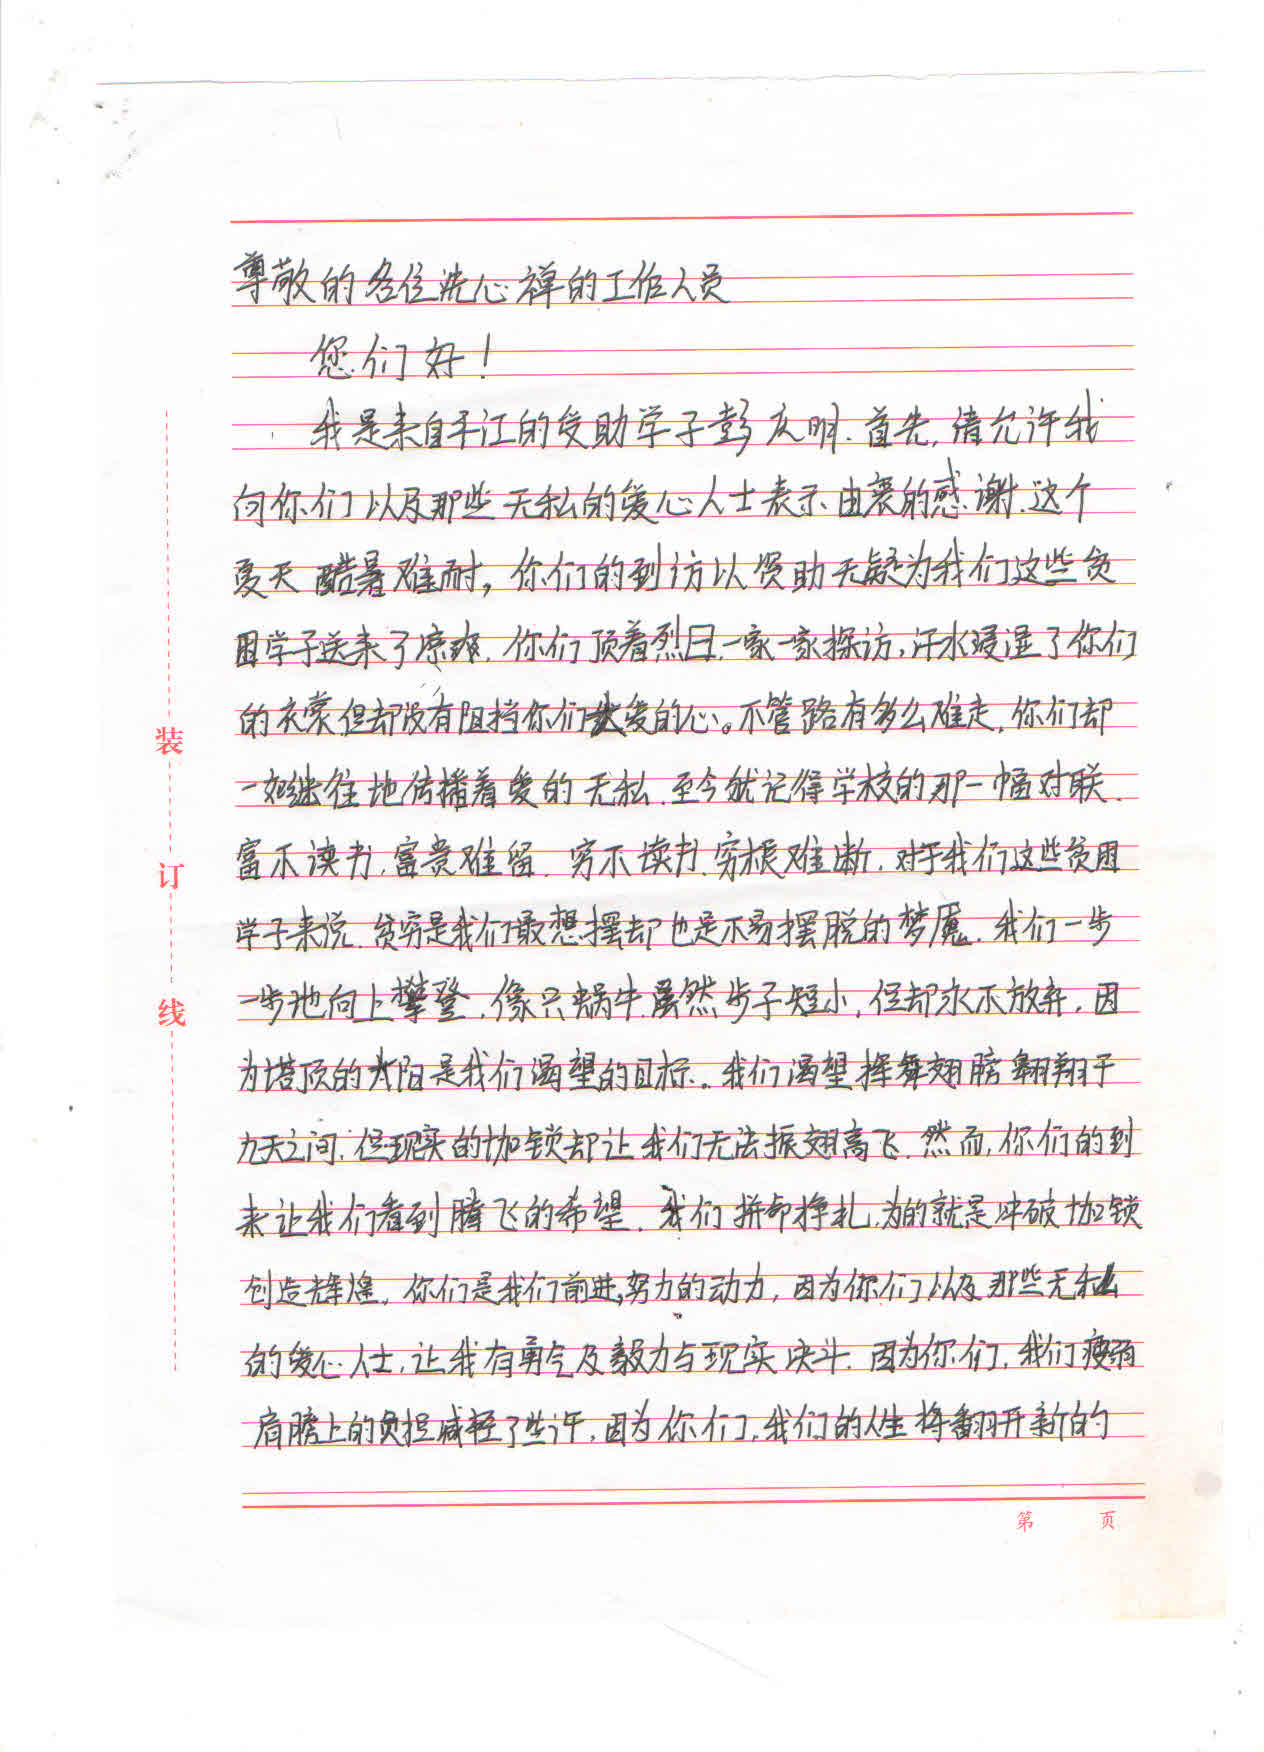 尊敬的各位洗心禅的工作人员
您们好！
我是来自平江的受助学子彭庆明.首先,请允许我
向你们以及那些无私的爱心人士表示由衷的感谢.这个
夏天酷暑难耐,你们的到访以资助无疑为我们这些贫
困学子送来了凉爽.你们顶着烈日,一家一家探访,汗水浸湿了你们
的衣裳但却没有阻挡你们大爱的心。不管路有多么难走,你们却
一如继往地传播着爱的无私.至今犹记得学校的那一幅对联.
富不读书,富贵难留.穷不读书,穷根难断.对于我们这些贫困
学子来说.贫穷是我们最想摆却也是不易摆脱的梦魇.我们一步
一步地向上攀登.像只蜗牛.虽然步子短小,但却永不放弃.因
为塔顶的太阳是我们渴望的目标。我们渴望挥舞翅膀翱翔于
九天之间.但现实的枷锁却让我们无法振翅高飞.然而,你们的到
来让我们看到腾飞的希望.我们拼命挣扎,为的就是冲破枷锁
创造辉煌.你们是我们前进,努力的动力,因为你们以及那些无私
的爱心人士,让我有勇气及毅力与现实决斗.因为你们,我们瘦弱
肩膀上的负担减轻了些许,因为你们,我们的人生将翻开新的
装
订
线
第 页